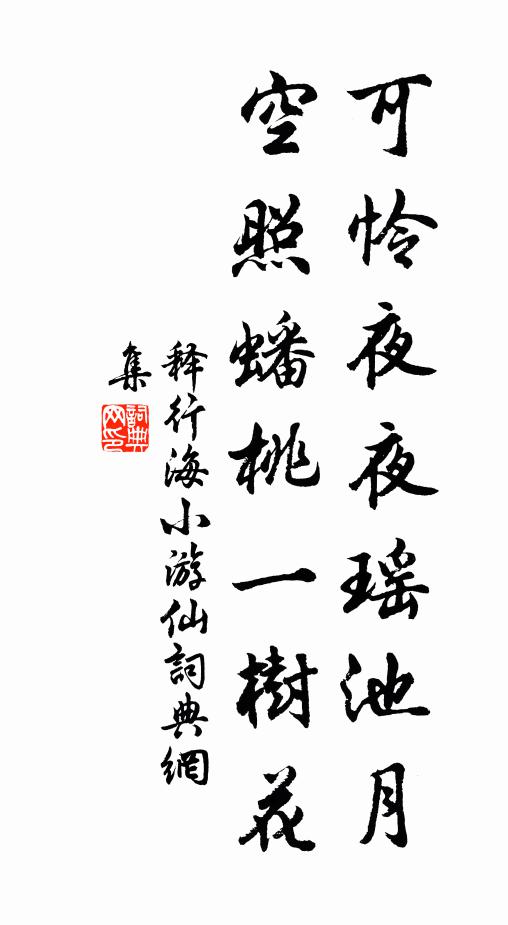 可怜夜夜瑶池月
空照蟠桃一樹花
释行海小游仙詞典網
集
詞典
网印